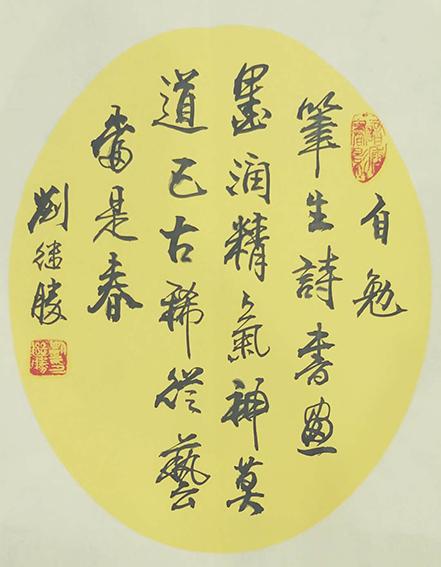 自勉
筆生詩書畫
墨润精氣神莫
道已古稀從藝
當是春
劉继勝